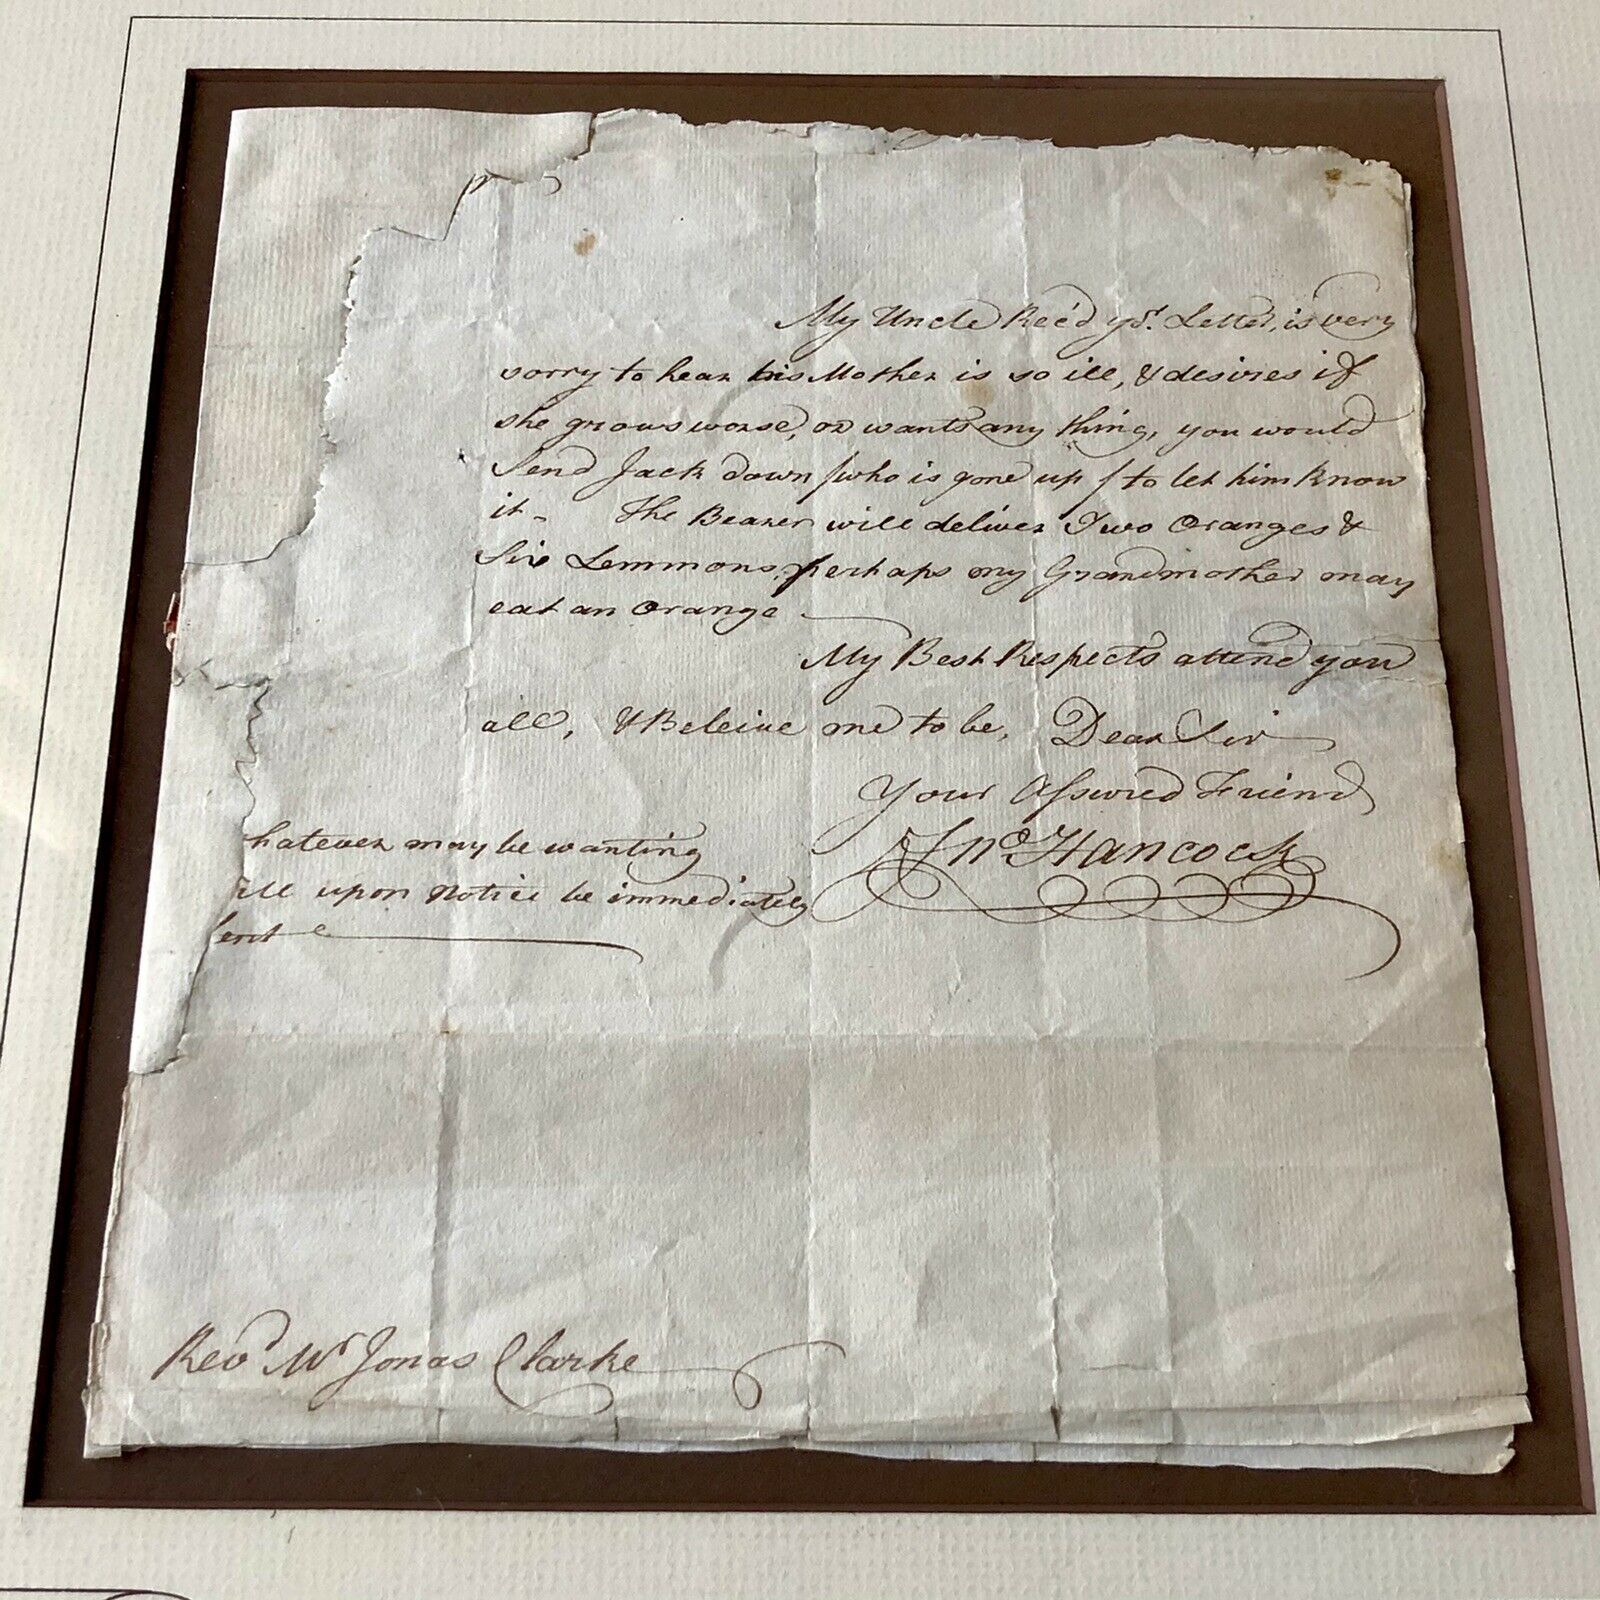 My Uncle Rec'd yr. Letter, is very
sorry to hear his Mother is so ill, & desires if
she grows worse, or wants any thing, you would
Send Jack down /who is gone up/ to let him know
it - The Bearer will deliver Two Oranges &
Six Lemmons, perhaps my Grandmother may
eat an Orange
My Best Respects attend you
all, & Beleive me to be, Dear Sir
Your Assured Friend
Jno Hancock
hatever may be wanting
ill upon notice be immediately
sent
Revd Mr Jonas Clarke